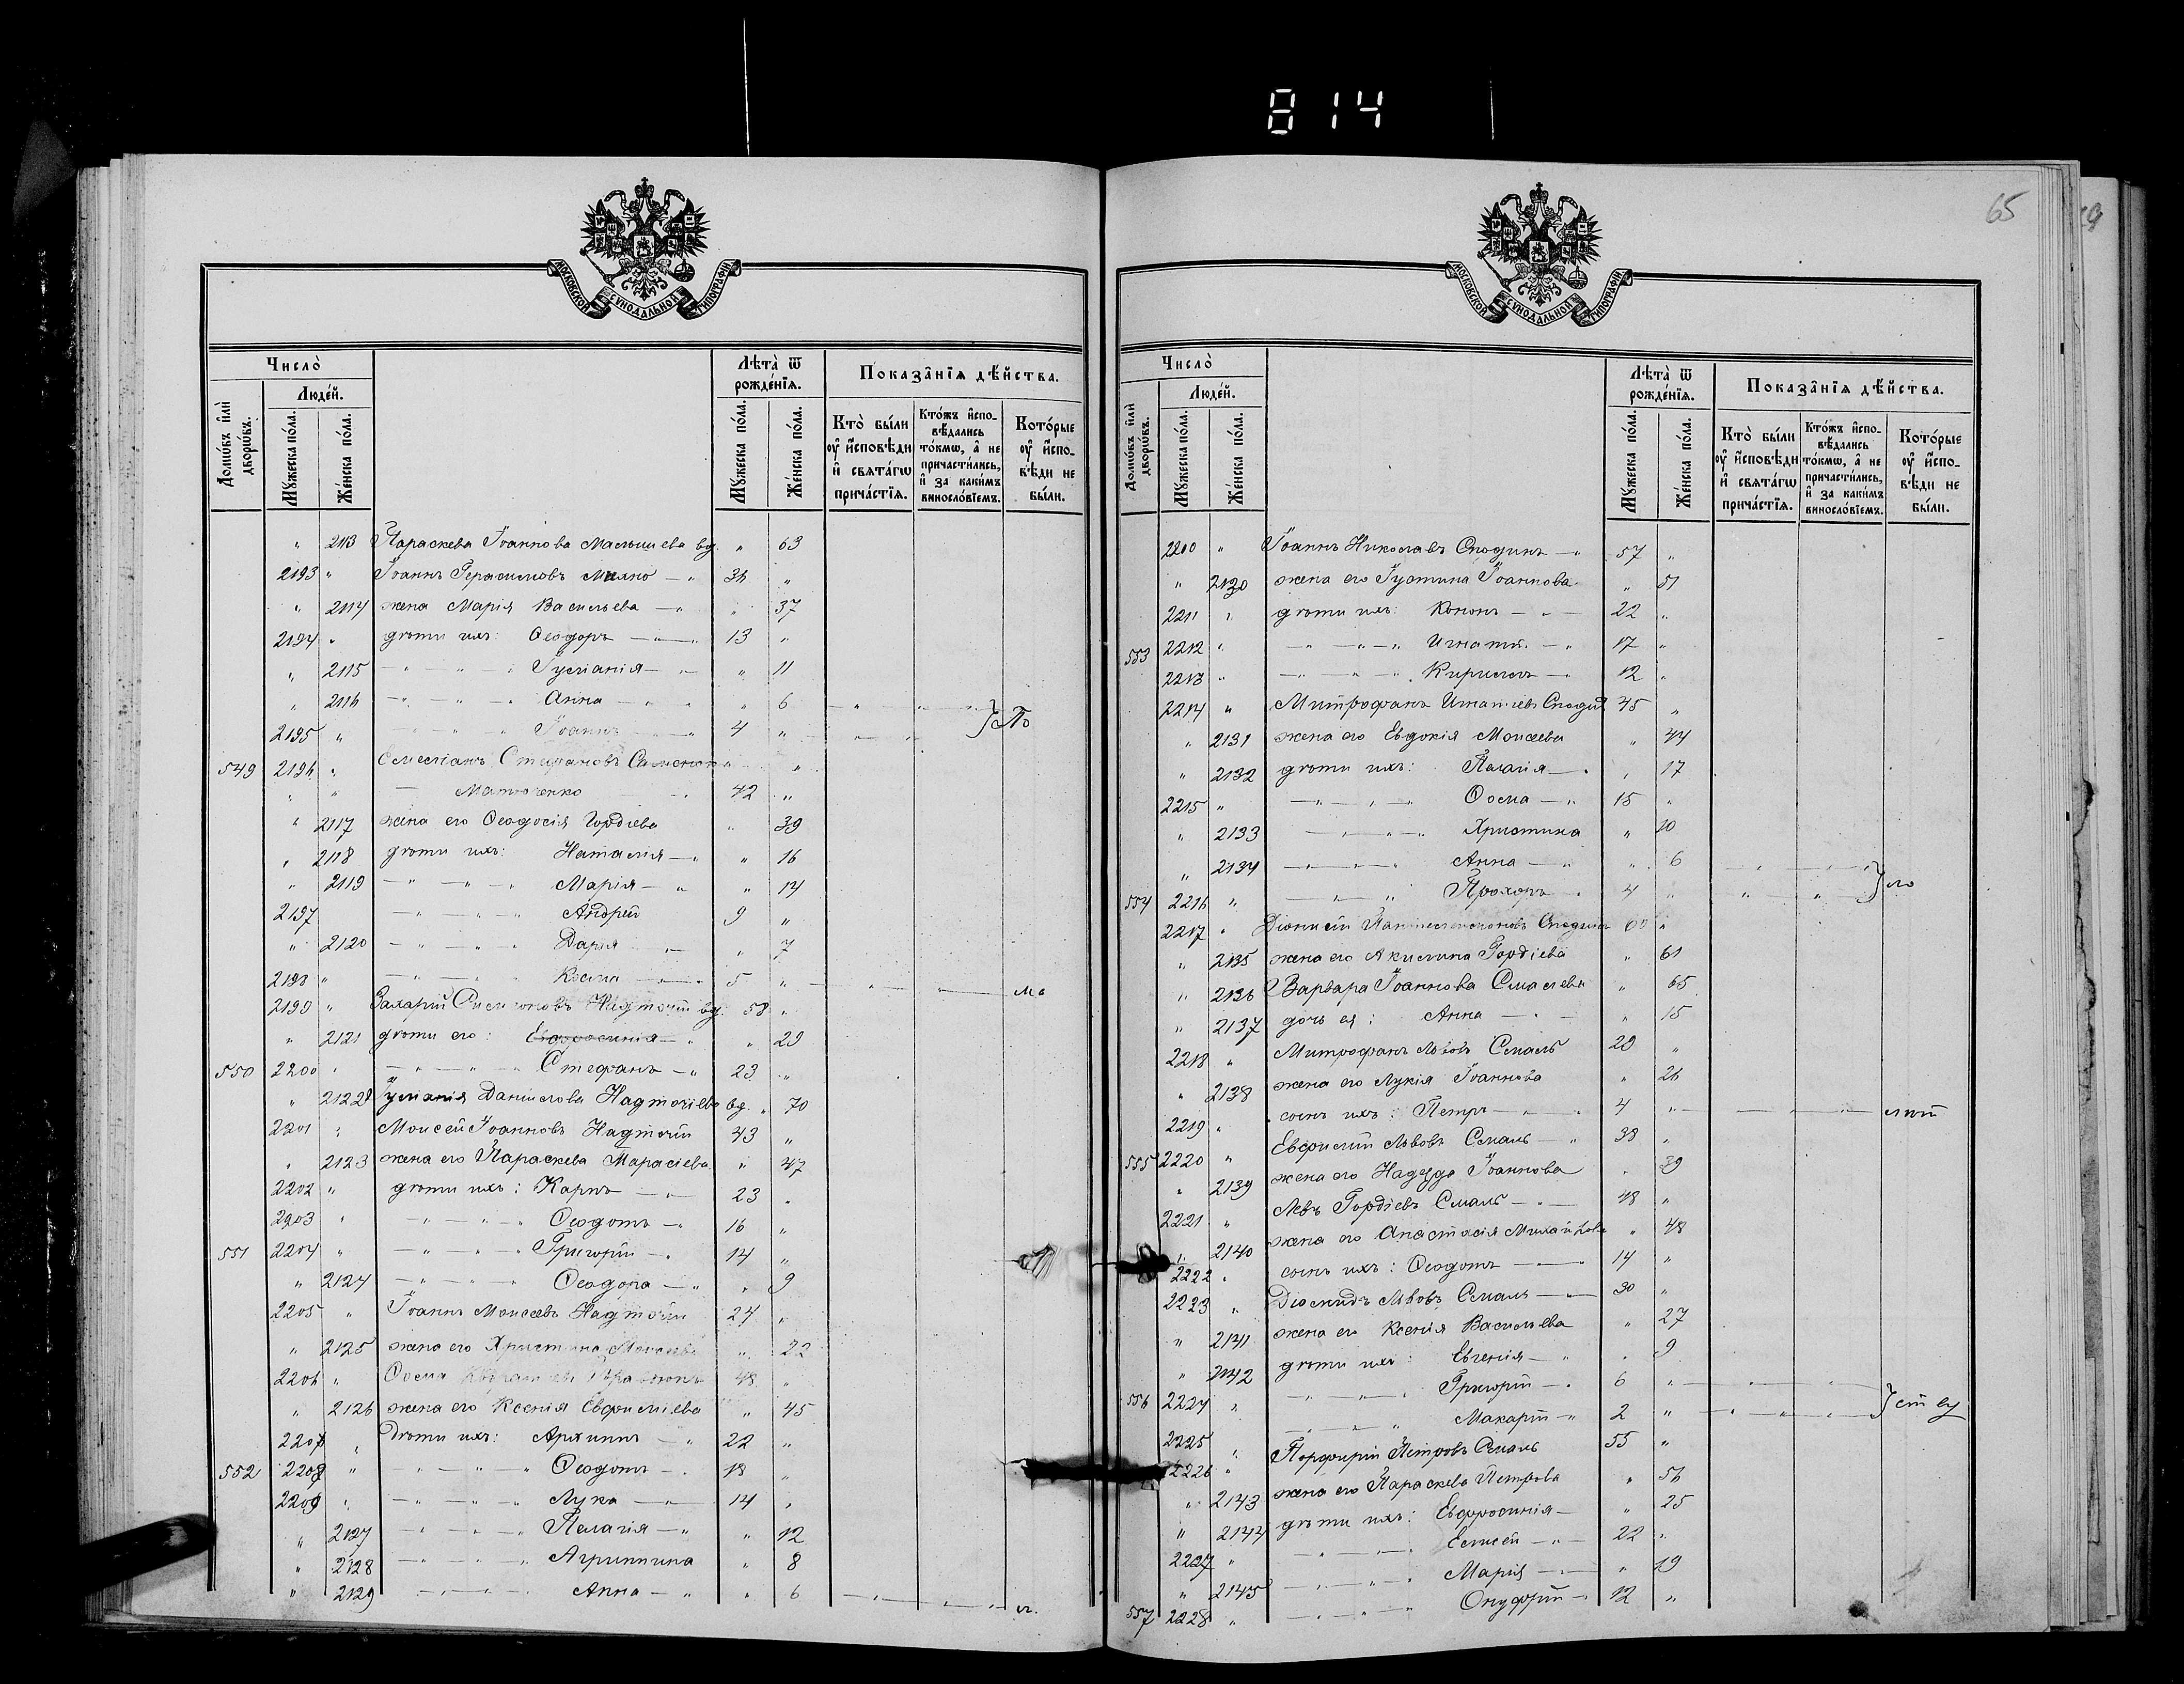 814
65
МОСКОВСКОЙ СѴНОДАЛЬНОЙ ТИПОГРАФІИ
Число̀
Людéй.
Домѡ́въ и҆лѝ дворѡ́въ.
Мꙋ́жеска по́ла.
Же́нска по́ла.
Лѣ́та ѿ рожде́нїя.
Мꙋ́жеска по́ла.
Же́нска по́ла.
Показа̑нїя дѣ́йства.
Кто̀ бы́ли оу҆ и҆́сповѣди и҆ свята́гѡ прича́стїя.
Кто́жъ и҆спо-вѣ́дались то́кмѡ, а҆ не причасти́лись, и҆ за каки́мъ винословїемъ.
Кото́рые оу҆ и҆спо-вѣди не бы́ли.
" 2113 Параскева Іоаннова Малышева вд. " 63
2193 " Іоаннъ Герасимовъ — " 34 "
" 2114 жена Марія Васильева — " " 37
2194 " дѣти ихъ: Ѳеодоръ — " — 13 "
" 2115 — " — " Іуліанія — " — " 11
" 2116 — " — " — " Анна — " " 6
2195 " — " — " Іоаннъ — " 4 "
549 2196 " Емеліанъ Стефановъ "
" " — Матюченко — " 42 "
" 2117 жена его Ѳеодосія Гордіева " 39
" 2118 дѣти ихъ: Наталія — " " 16
" 2119 — " — " — " Марія — " " 14
2197 — " — " — " Андрей 9 "
" 2120 — " — " — " Дарія — " — " 7
2198 " — " — " Косма — " — 5 "
2199 " Захарій Симеоновъ Надточій вд. 58 "
" 2121 дѣти его: Евфросинія — " " 29
550 2200 " — " — " — " Стефанъ — " 23 "
" 2122 Іуліанія Даніилова Надточіева вд. " 70
2201 " Моисей Іоанновъ Надточій 43 "
" 2123 жена его Параскева Тарасіева " 47
2202 " дѣти ихъ: Карпъ — " — 23 "
2203 " — " — " — " Ѳеодотъ — " 16 "
551 2204 " — " — " — " Григорій — " 14 "
" 2124 — " — " — " Ѳеодора — " " 9
2205 " Іоаннъ Моисеевъ Надточій 24 "
" 2125 жена его Христина " 22
2206 " Ѳома 48 "
" 2126 жена его Ксенія Евфиміева " 45
2207 " Дѣти ихъ: Архипъ — " 22 "
552 2208 " — " — " — " Ѳеодотъ — " 18 "
2209 " — " — " — " Лука — " — 14 "
" 2127 — " — " — " Пелагія — " " 12
" 2128 — " — " — " Агриппина " 8
" 2129 — " — " — " Анна — " " 6
МОСКОВСКОЙ СѴНОДАЛЬНОЙ ТИПОГРАФІИ
Число̀
Людéй.
Домѡ́въ и҆лѝ дворѡ́въ.
Мꙋ́жеска по́ла.
Же́нска по́ла.
Лѣ́та ѿ рожде́нїя.
Мꙋ́жеска по́ла.
Же́нска по́ла.
Показа̑нїя дѣ́йства.
Кто̀ бы́ли оу҆ и҆́сповѣди и҆ свята́гѡ прича́стїя.
Кто́жъ и҆спо-вѣ́дались то́кмѡ, а҆ не причасти́лись, и҆ за каки́мъ винословїемъ.
Кото́рые оу҆ и҆спо-вѣди не бы́ли.
2200 " Іоаннъ Николаевъ Сподинъ — " 57 "
" 2130 жена его Іустина Іоаннова " 51
2211 " дѣти ихъ: Кононъ — " — 22 "
553 2212 " — " — " — " Игнатій — " 17 "
2213 " — " — " — " Кириллъ — " 12 "
2214 " Митрофанъ Игнатіевъ 45 "
" 2131 жена его Евдокія Моисеева " 44
" 2132 дѣти ихъ: Пелагія — " " 17
2215 " — " — " — " Ѳома — " 15 "
" 2133 — " — " — " Христина " 10
" 2134 — " — " — " Анна — " " 6
554 2216 " — " — " Прохоръ — " 4 "
2217 " Діонисій Пантелеимоновъ Сподинъ 60 "
" 2135 жена его Акилина Гордіева " 61
" 2136 Варвара Іоаннова " 65
" 2137 дочь ея: Анна — " — " 15
2218 " Митрофанъ Львовъ Смаль 29 "
" 2138 жена его Лукія Іоаннова " 26
2219 " сынъ ихъ: Петръ — " — " 4 "
555 2220 " Евфимій Львовъ Смаль — " 38 "
" 2139 жена его Надежда Іоаннова " 39
2221 " Левъ Гордіевъ Смаль — " — 48 "
" 2140 жена его Анастасія Михайлова " 48
2222 " сынъ ихъ: Ѳеодотъ — " 14 "
2223 " Діоскидъ Львовъ Смаль — " 30 "
" 2141 жена его Ксенія Васильева " 27
" 2142 дѣти ихъ: Евгенія — " " 9
556 2224 " — " — " — " Григорій — " 6 "
2225 " — " — " — " Макарій — " 2 "
2226 " Порфирій Петровъ Смаль 55 "
" 2143 жена его Параскева Петрова " 56
" 2144 дѣти ихъ: Евфросинія — " 25
2227 " — " — " — " Елисей — " — 22 "
" 2145 — " — " — " Марія — " — " 19
557 2228 " — " — " — " Онуфрій — " 12 "